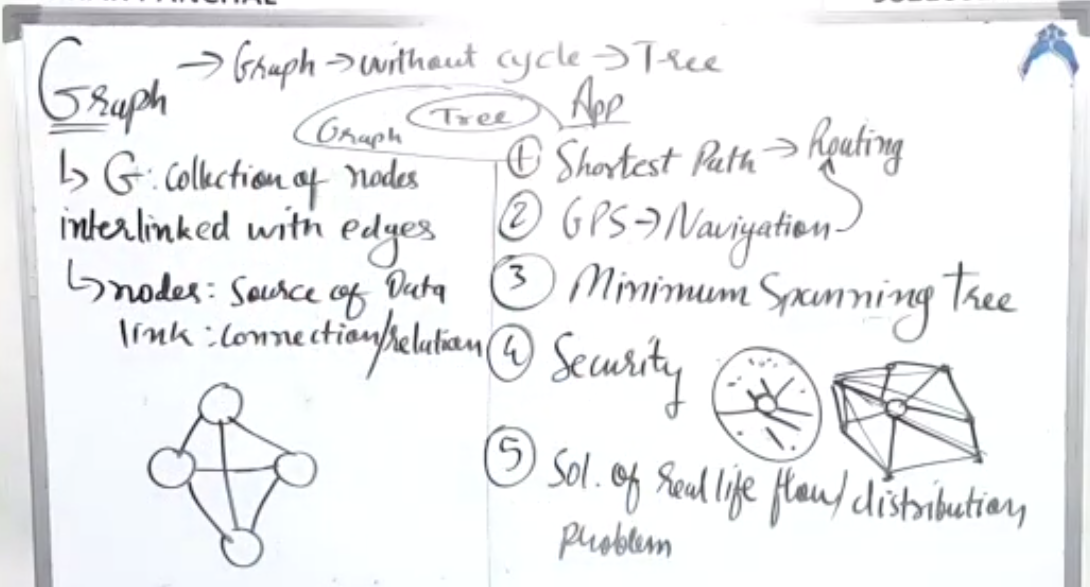 Graph → Graph → without cycle → Tree
Graph Tree
↳ G: Collection of nodes
interlinked with edges
↳ nodes: Source of Data
link: Connection/relation
App
① Shortest Path → Routing
② GPS → Navigation
③ Minimum Spanning Tree
④ Security
⑤ Sol. of real life flow/distribution
problem